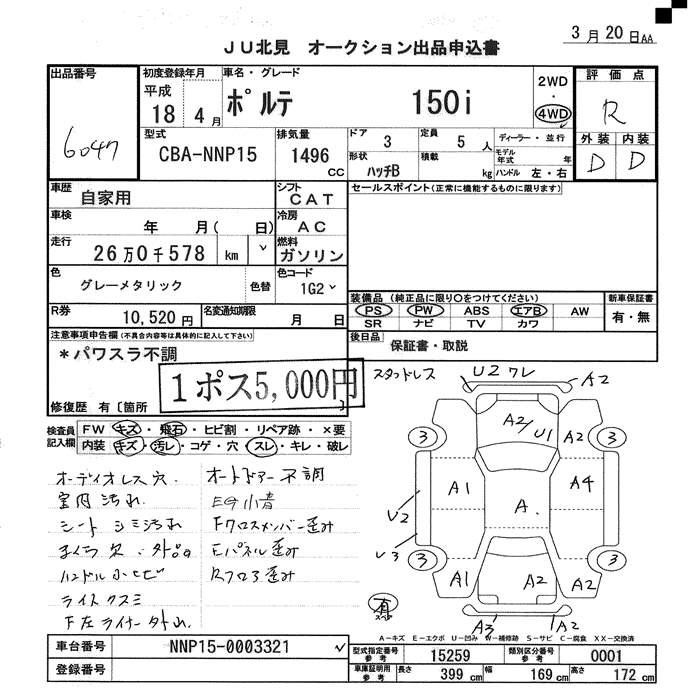 3月20日AA
JU北見 オークション出品申込書
出品番号 6047
初度登録年月 平成 18 4月
車名・グレード ポルテ 150i
2WD ・ 4WD
評価点 R
外装 内装
D D
型式 CBA-NNP15
排気量 1496 CC
ドア 3
定員 5 人
形状 ハッチB
積載 kg
ディーラー・並行
モデル年式 年
ハンドル 左・右
車歴 自家用
シフト CAT
セールスポイント(正常に機能するものに限ります)
車検 年 月( 日)
冷房 AC
走行 26万0千578 km
燃料 ガソリン
色 グレーメタリック 色替
色コード 1G2
装備品(純正品に限り○をつけてください)
新車保証書
PS PW ABS エアB AW
有・無
SR ナビ TV カワ
R券 10,520円
名変通知期限 月 日
後日品 保証書・取説
注意事項申告欄(不具合内容等は具体的に記入して下さい)
*パワスラ不調
1ポス5,000円
修復歴 有〔箇所
検査員記入欄
FW キズ・飛石・ヒビ割・リペア跡・×要
内装 キズ・汚レ・コゲ・穴・スレ・キレ・破レ
オーディオレス穴.
室内汚れ
シート シミ汚れ
ハンドル小ヒビ
ライトクスミ
F左ライナー外れ
オートドアー不調
EG小音
Fクロスメンバー歪み
Eパネル歪み
Rフロア歪み
スタッドレス
U2 ワレ A2
3 A2 U1 A2 3
A1 A. A4
U2
U3
3 A1 A2 A2 3
有
A3 A2
A-キズ E-エクボ U-凹み W-補修跡 S-サビ C-腐食 XX-交換済
車台番号 NNP15-0003321
登録番号
型式指定番号 参考 15259
類別区分番号 参考 0001
車庫証明用 参考 長さ 399 cm 幅 169 cm 高さ 172 cm